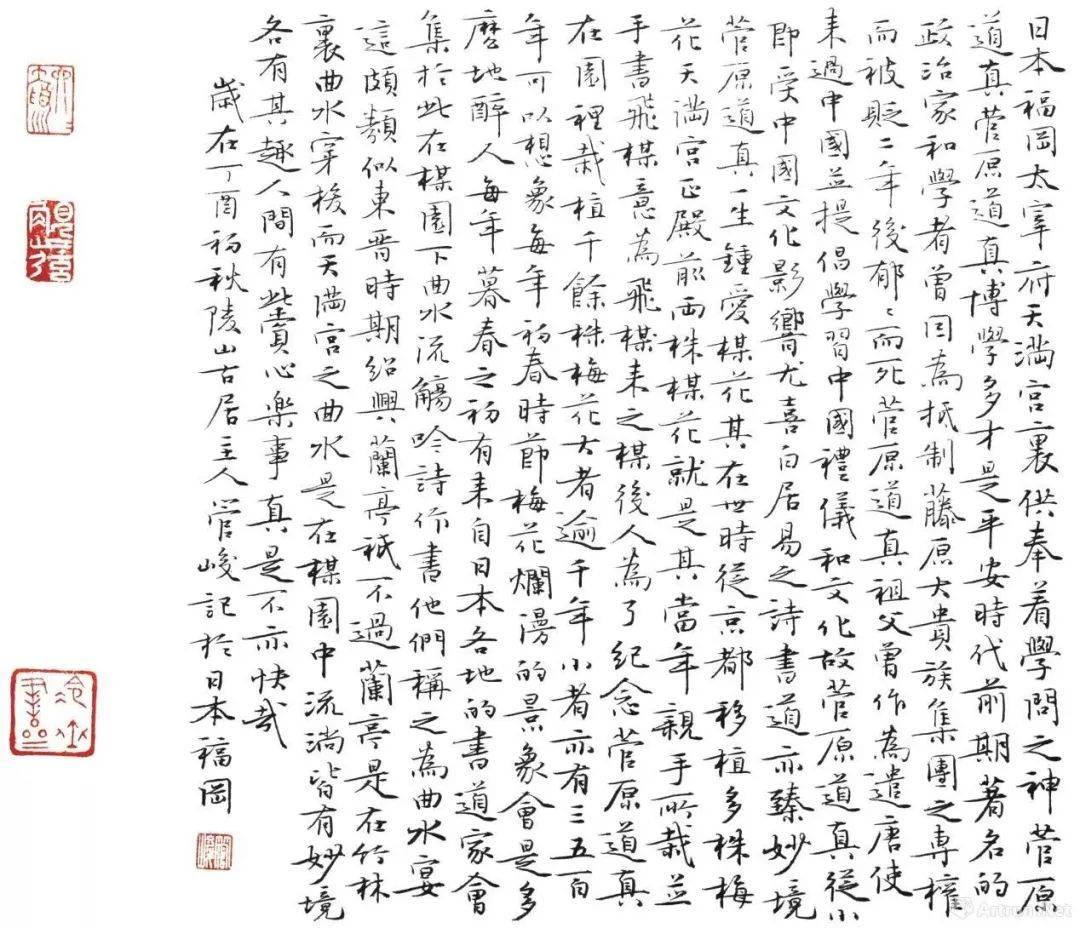 日本福岡太宰府天满宫裏供奉着學問之神菅原
道真菅原道真博學多才是平安時代前期著名的
政治家和學者曾因為抵制藤原大貴族集團之專權
而被貶二年後郁々而死菅原道真祖父曾作為遣唐使
来過中國並提倡學習中國禮儀和文化故菅原道真從小
即受中國文化影響尤喜白居易之詩書道亦臻妙境
菅原道真一生鍾愛楳花其在世時從京都移植多株梅
花天满宫正殿前两株楳花就是其當年親手所栽並
手書飛楳意為飛楳来之楳後人為了纪念菅原道真
在園裡栽植千餘株梅花大者逾千年小者亦有三五百
年可以想象每年初春時節梅花爛漫的景象會是多
麽地醉人每年暮春之初有来自日本各地的書道家會
集於此在楳園下曲水流觴吟詩作書他們稱之為曲水宴
這頗類似東晋時期紹興蘭亭祇不過蘭亭是在竹林
裏曲水穿梭而天满宫之曲水是在楳園中流淌皆有妙境
各有其趣人間有此賞心楽事真是不亦快哉
歲在丁酉初秋陵山古居主人管峻記於日本福岡
Artron.Net